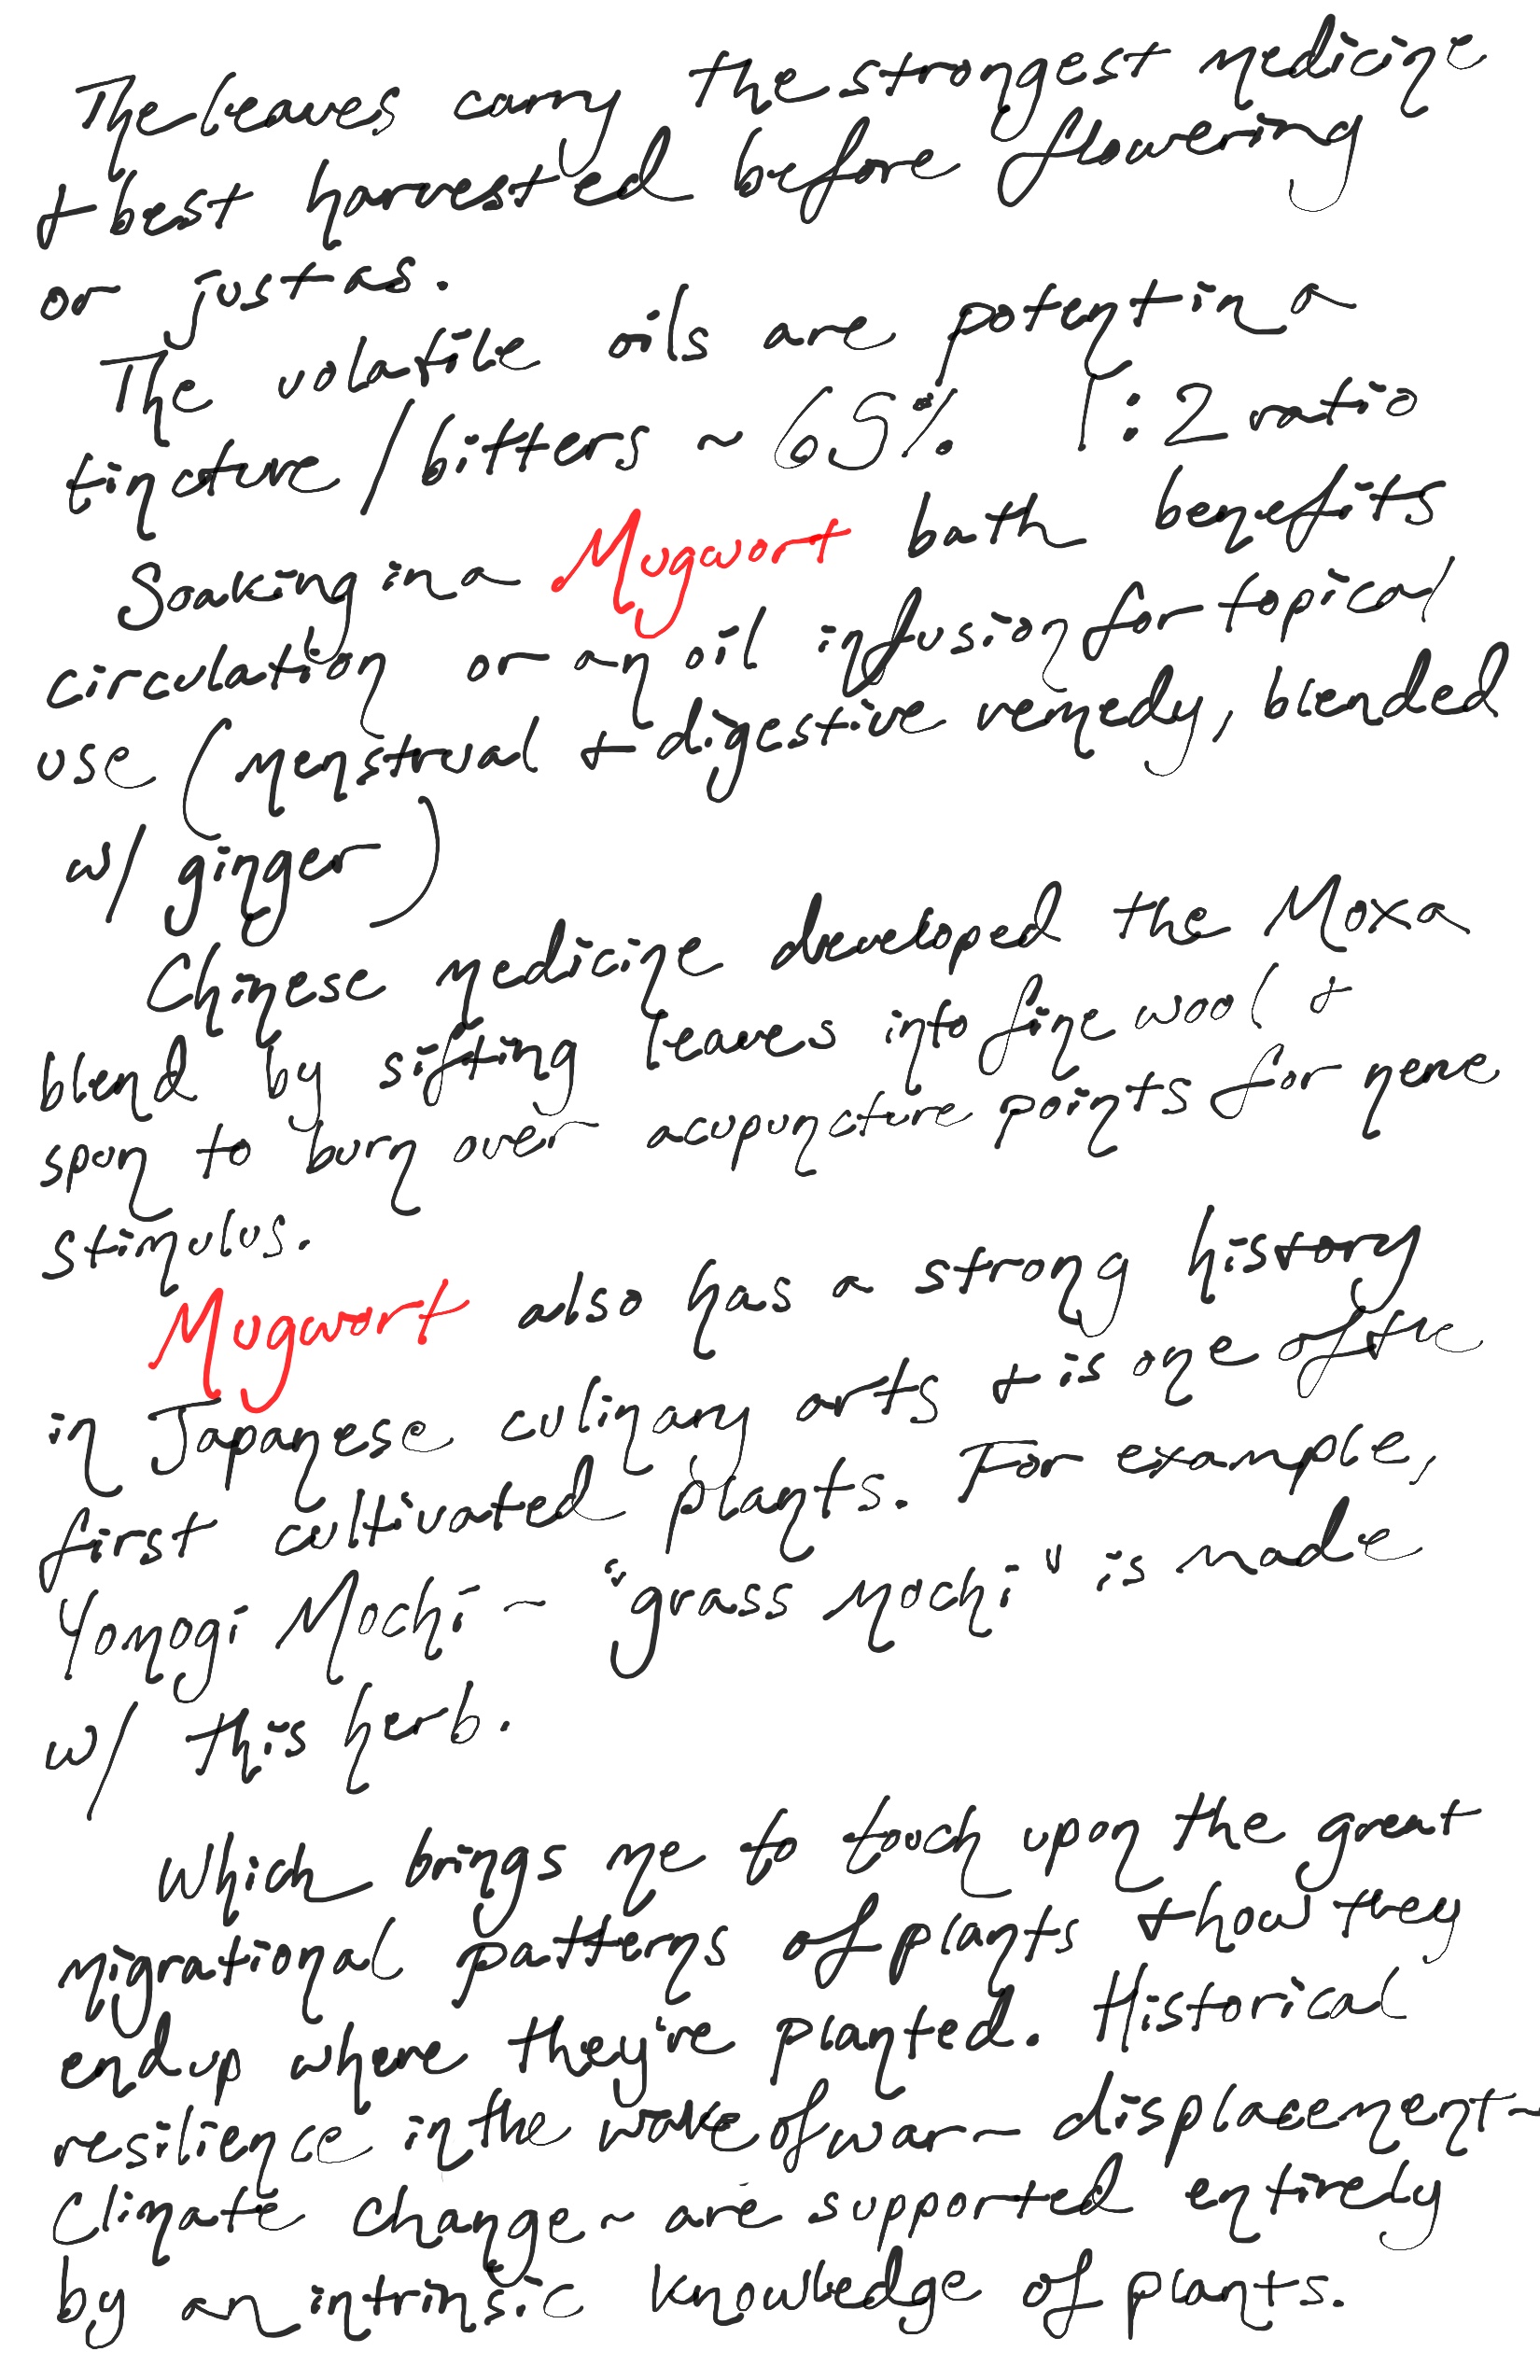 The leaves carry the strongest medicine
+ best harvested before flowering
or just as.
The volatile oils are potent in a
tincture / bitters ~ 65% 1:2 ratio
Soaking in a Mugwort bath benefits
circulation or an oil infusion for topical
use (menstrual + digestive remedy, blended
w/ ginger)
Chinese medicine developed the Moxa
blend by sifting leaves into fine wool +
spun to burn over acupuncture points for nerve
stimulus.
Mugwort also has a strong history
in Japanese culinary arts + is one of the
first cultivated plants. For example,
Yomogi Mochi ~ "grass mochi" is made
w/ this herb.
Which brings me to touch upon the great
migrational patterns of plants + how they
end up where they're planted. Historical
resilience in the wake of war ~ displacement ~
climate change ~ are supported entirely
by an intrinsic knowledge of plants.